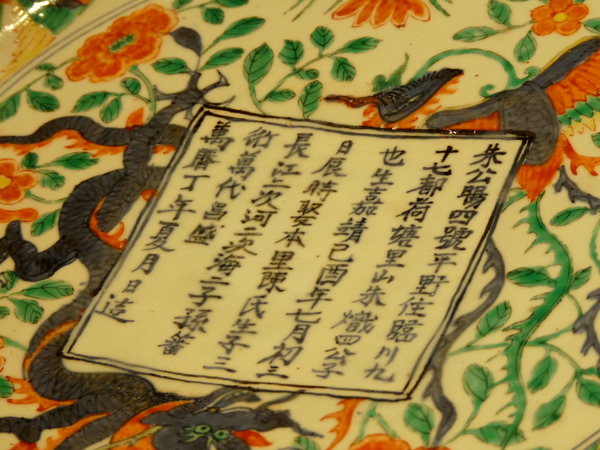 朱公陽四號平野住臨川九
十七都荷塘里山朱熾四公子
也生嘉靖己酉年七月初二
日辰時娶本里陳氏生子三
長江二次河二次海二子孫蕃
衍萬代昌盛
萬曆丁年夏月日造